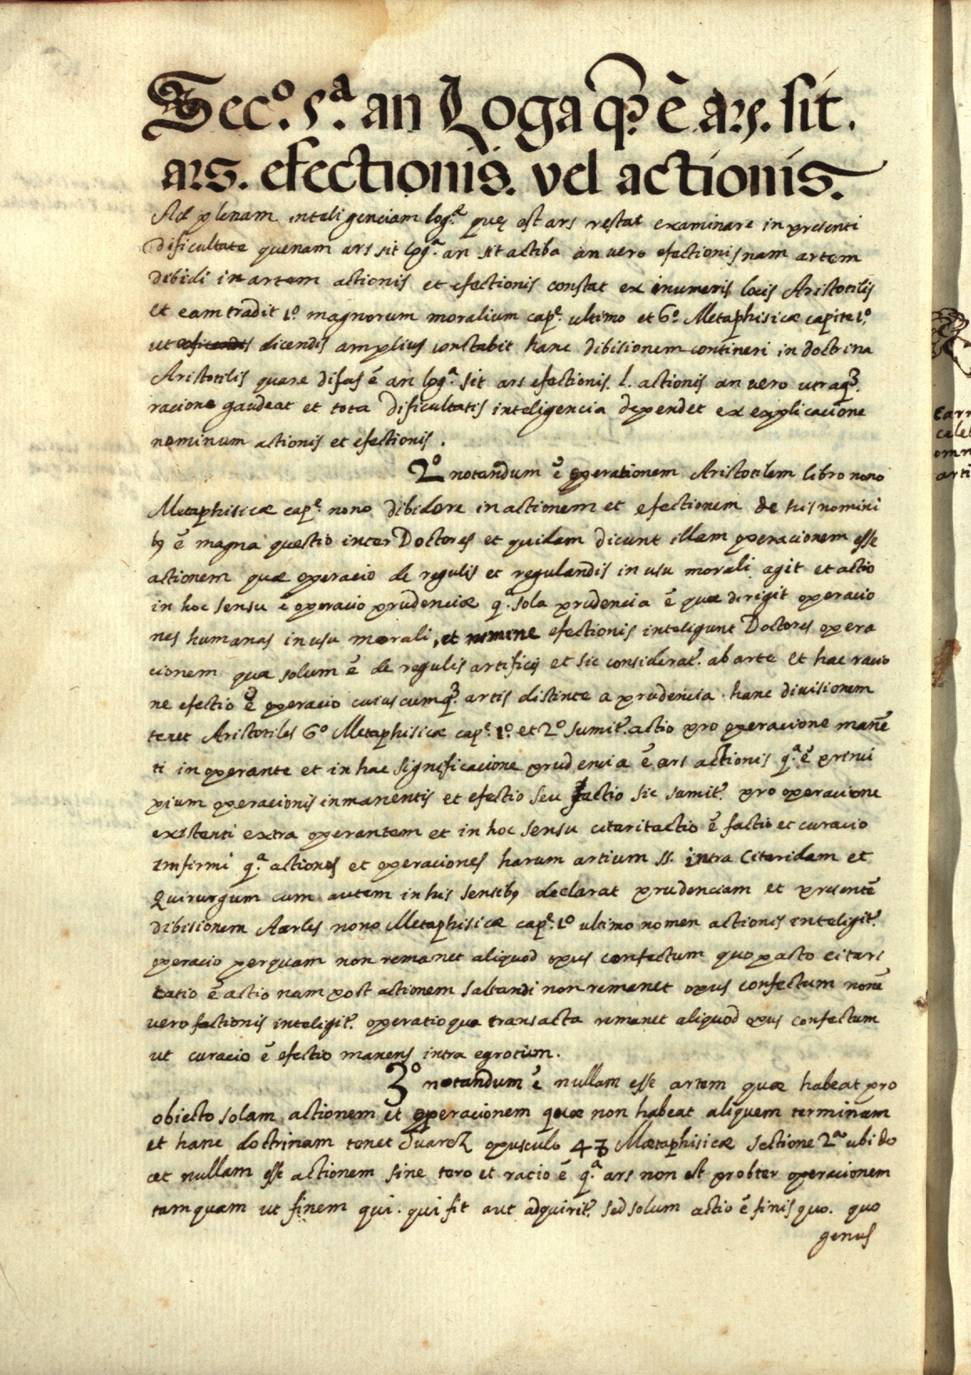 Sec.º 5.ª an Loga q̃. ẽ ars. sit.
ars. efectionis. vel actionis.
Ad plenam inteligenciam log.ª quę est ars restat examinare in presenti
dificultate quenam ars sit log.ª an sit actiba an vero efectionis nam artem
dibidi in artem actionis et efectionis constat ex inumeris locis Aristotilis
et eam tradit 1.º magnorum moralium cap.º ultimo et 6.º Metaphisicæ capite 1.º
ut dicendis amplius constabit hanc dibisionem contineri in doctrina
Aristotilis quare difas ẽ an log.ª sit ars efectionis. l. actionis an vero utraq3
racione gaudeat et tota dificultatis inteligencia dependet ex explicacione
nominum actionis et efectionis.
2.º notandum ẽ operationem Aristotilem libro nono
Metaphisicæ cap.º nono dibidere in actionem et efectionem de his nomini
b9 ẽ magna questio inter Doctores et quidam dicunt illam operacionem esse
actionem quæ operacio de regulis et regulandis in usu morali agit et actio
in hoc sensu ẽ operacio prudenciæ q. sola prudencia ẽ quæ dirigit operacio
nes humanas in usu morali, et nomine efectionis inteligunt Doctores opera
cionem quæ solum ẽ de regulis artificij et sic considerat.r ab arte et hac racio
ne efectio ẽ operacio cuiuscumq3 artis distincte a prudencia. hanc diuisionem
tenet Aristotiles 6.º Metaphisicæ cap.º 1.º et 2.º sumit.r actio pro operacione manẽ
ti in operante et in hac significacione prudencia ẽ ars actionis q.ª ẽ princi
pium operacionis inmanentis et efectio seu factio sic sumit.r pro operacione
existenti extra operantem et in hoc sensu citaritactio ẽ factio et curacio
infirmi q.ª actiones et operaciones harum artium ss. intra Citaridam et
Quirurgum cum autem in his sensib9 declarat prudenciam et presentẽ
dibisionem Aarles nono Metaphisicæ cap.º 1.º ultimo nomen actionis inteligit.r
operacio perquam non remanet aliquod opus confectum quo pacto citari
tatio ẽ actio nam post actionem saltandi non remanet opus confectum nomẽ
vero factionis inteligit.r operatio qua transacta remanet aliquod opus confectum
ut curacio ẽ efectio manens intra egrotum.
3.º notandum ẽ nullam esse artem quæ habeat pro
obiecto solam actionem et operacionem quæ non habeat aliquem terminum
et hanc doctrinam tenet Suarez opusculo 48 Metaphisicæ sectione 2.ª ubi do
cet nullam esse actionem sine toro et racio ẽ q.ª ars non est probter operacionem
tamquam ut finem qui. qui fit aut adquirit.r sed solum actio ẽ finis quo. quo
genus